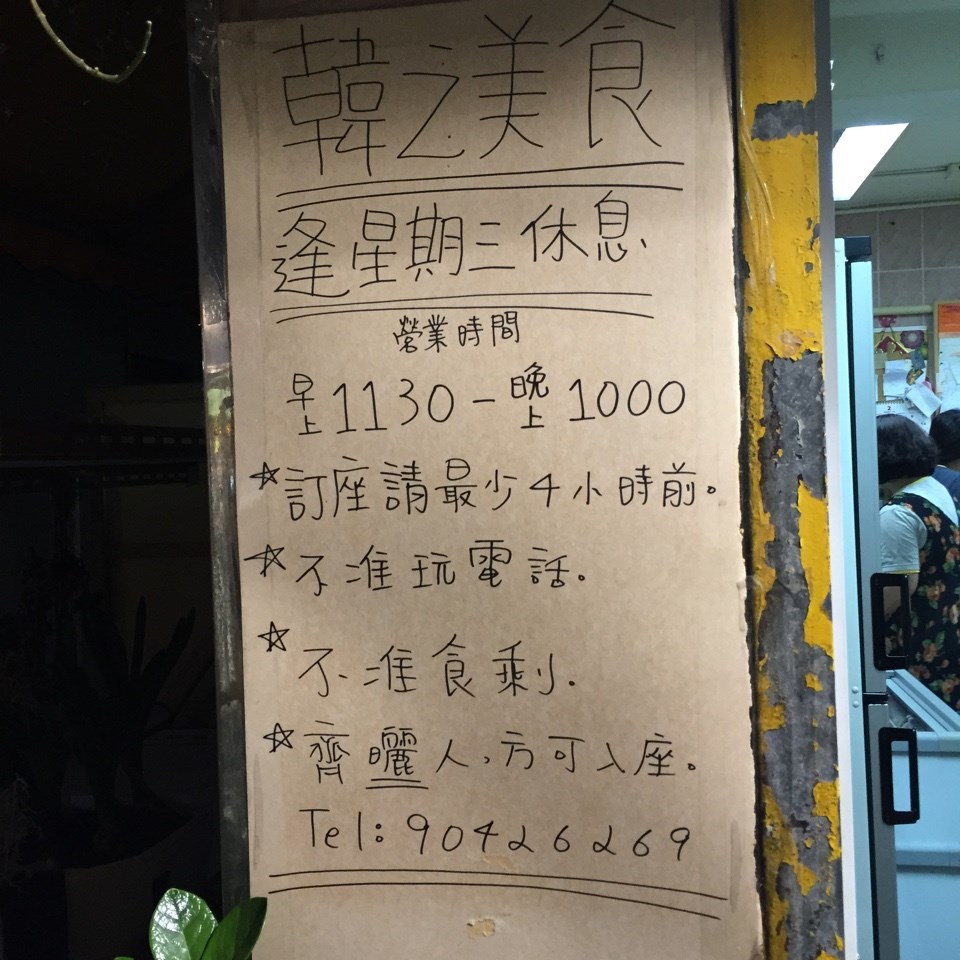 韓之美食
逢星期三休息
營業時間
早上1130-晚上1000
☆訂座請最少4小時前。
☆不准玩電話。
☆不准食剩.
☆齊曬人,方可入座。
Tel:90426269